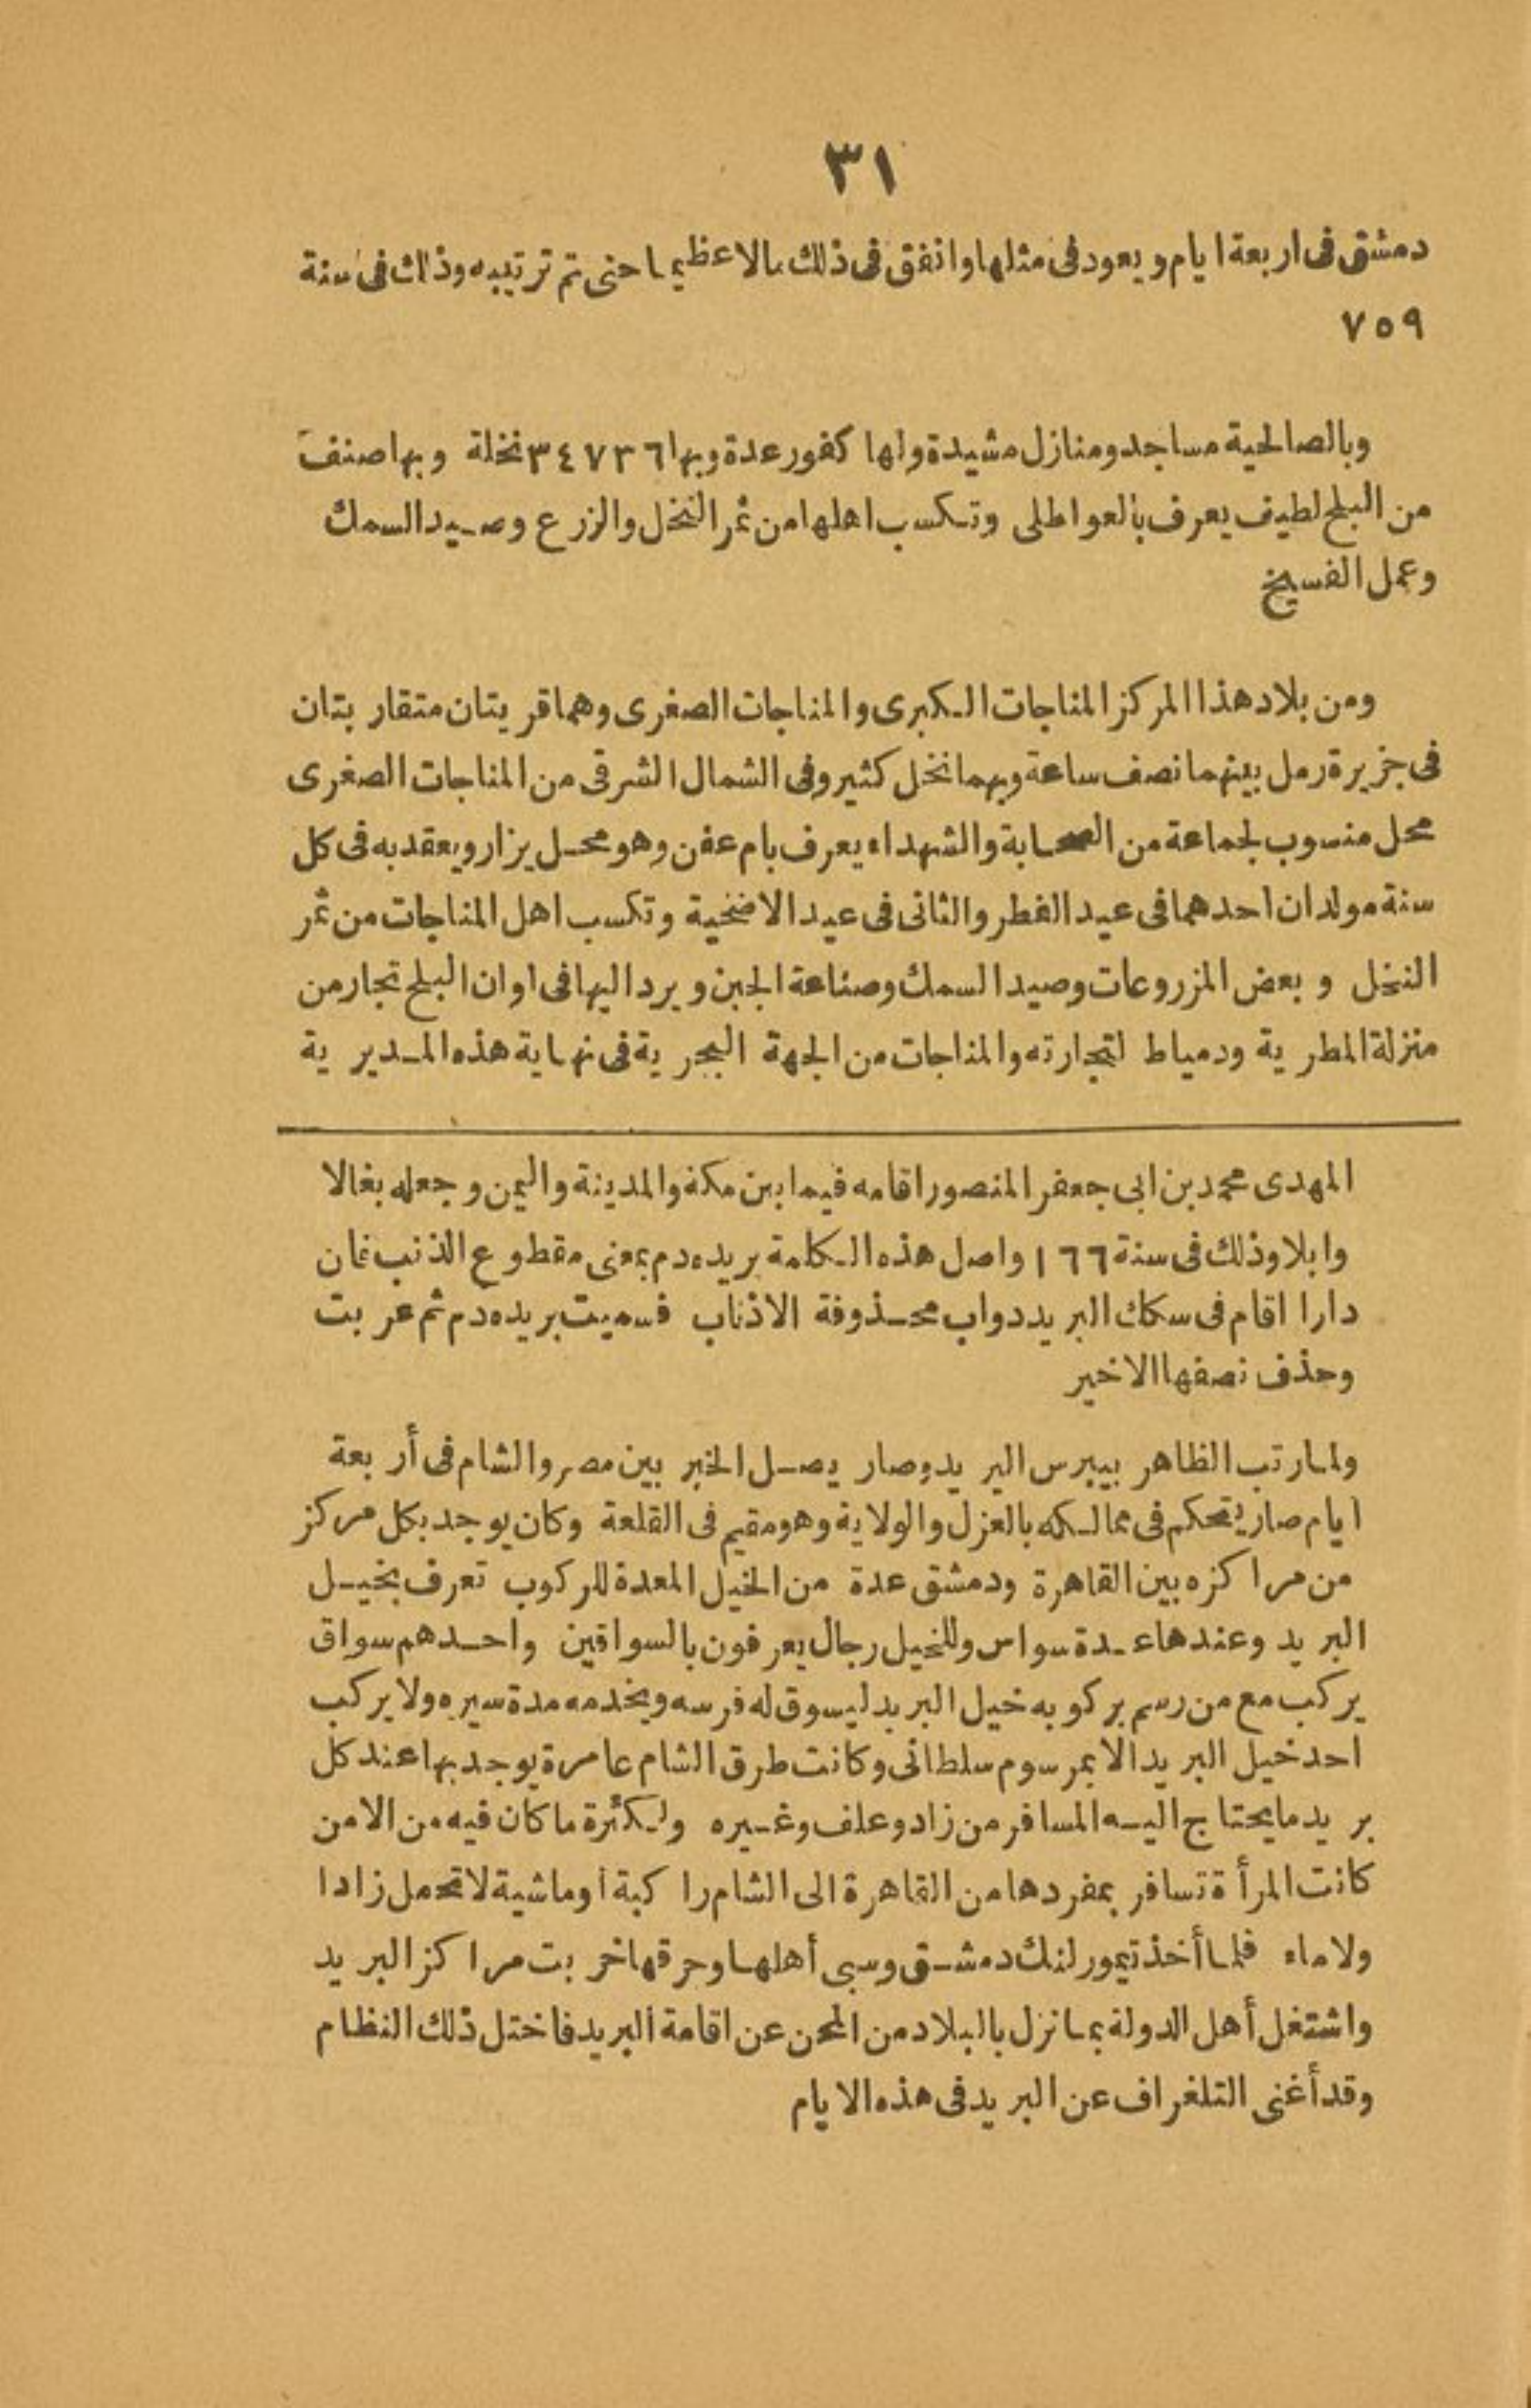 ٣١
دمشق فى اربعة ايام ويعود فى مثلها وانفق فى ذلك مالا عظيما حتى تم ترتيبه وذلك فى سنة
٧٥٩
وبالصالحية مساجد ومنازل مشيدة ولها كفور عدة وبها ٣٤٧٣٦ نخلة وبها صنف
من البلح لطيف يعرف بالعواطلى وتكسب اهلها من ثمر النخل والزرع وصيد السمك
وعمل الفسيخ
ومن بلاد هذا المركز المناجات الكبرى والمناجات الصغرى وهما قريتان متقاربتان
فى جزيرة رمل بينهما نصف ساعة وبهما نخل كثير وفى الشمال الشرقى من المناجات الصغرى
محل منسوب لجماعة من الصحابة والشهداء يعرف بام عفن وهو محل يزار ويعقد به فى كل
سنة مولدان احدهما فى عيد الفطر والثانى فى عيد الاضحية وتكسب اهل المناجات من ثمر
النخل وبعض المزروعات وصيد السمك وصناعة الجبن ويرد اليها فى اوان البلح تجار من
منزلة المطرية ودمياط لتجارته والمناجات من الجهة البحرية فى نهاية هذه المديرية
المهدى محمد بن ابى جعفر المنصور اقامه فيما بين مكة والمدينة واليمن وجعله بغالا
وابلا وذلك فى سنة ١٦٦ واصل هذه الكلمة بريده دم بمعنى مقطوع الذنب فان
دارا اقام فى سكك البريد دواب محذوفة الاذناب فسميت بريده دم ثم عربت
وحذف نصفها الاخير
ولما رتب الظاهر بيبرس البريد وصار يصل الخبر بين مصر والشام فى أربعة
ايام صار يتحكم فى ممالكه بالعزل والولاية وهو مقيم فى القلعة وكان يوجد بكل مركز
من مراكزه بين القاهرة ودمشق عدة من الخيل المعدة للركوب تعرف بخيل
البريد وعندها عدة سواس وللخيل رجال يعرفون بالسواقين واحدهم سواق
يركب مع من رسم بركوبه خيل البريد ليسوق له فرسه ويخدمه مدة سيره ولا يركب
احد خيل البريد الا بمرسوم سلطانى وكانت طرق الشام عامرة يوجد بها عند كل
بريد ما يحتاج اليه المسافر من زاد وعلف وغيره ولكثرة ما كان فيه من الامن
كانت المرأة تسافر بمفردها من القاهرة الى الشام راكبة او ماشية لا تحمل زادا
ولا ماء فلما أخذ تيمورلنك دمشق وسبى أهلها وحرقها خربت مراكز البريد
واشتغل أهل الدولة بما نزل بالبلاد من المحن عن اقامة البريد فاختل ذلك النظام
وقد أغنى التلغراف عن البريد فى هذه الايام